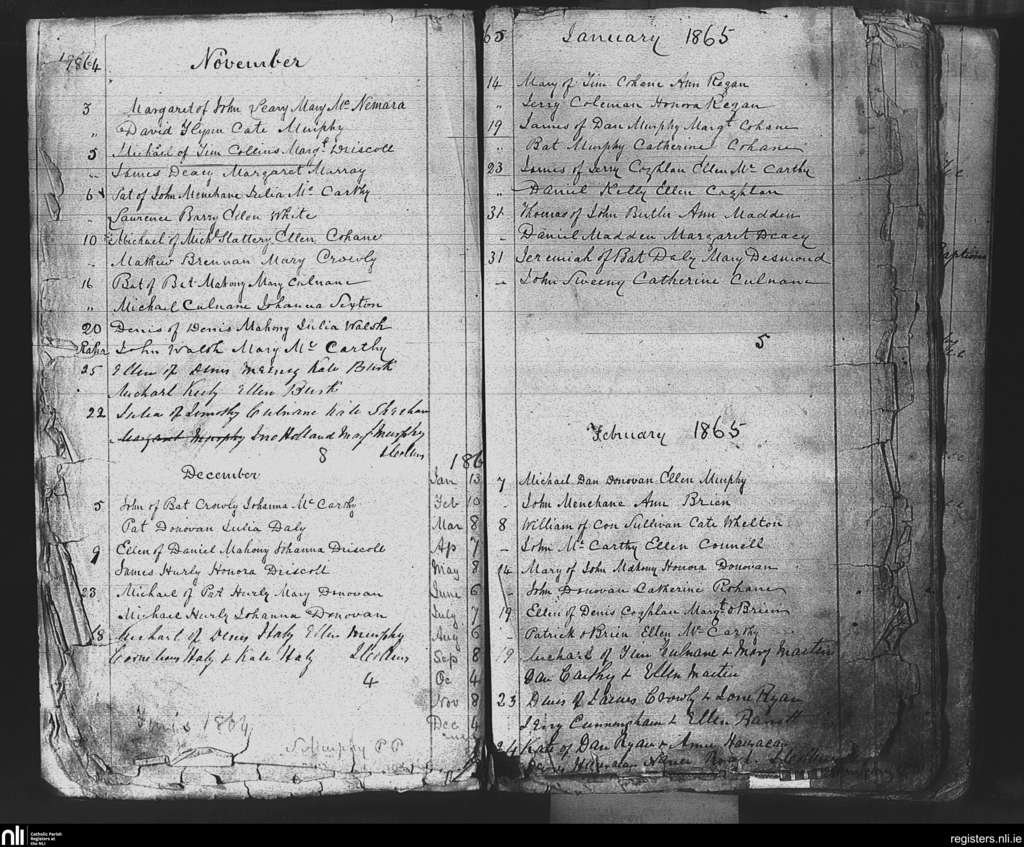 1864
November
3 Margaret of John Leary Mary Mc Nemara
" David Flynn Cate Murphy
5 Michael of Tim Collins Margt Driscoll
" James Deacy Margaret Murray
6 Pat of John Menehane Julia Mc Carthy
Laurence Barry Ellen White
10 Michael of Michl Slattery Ellen Cohane
" Mathew Brennan Mary Crowly
16 Bat of Bat Mahony Mary Culnane
" Michael Culnane Johanna Sexton
20 Denis of Denis Mahony Julia Walsh
John Walsh Mary Mc Carthy
25 Ellen of Denis Kate Burk
Michael Ellen Burk
22 Julia of Timothy Culnane Kate Sheehan
Margaret Murphy Jno Holland Mary Murphy
8 J Collins
December
5 John of Bat Crowly Johanna Mc Carthy
Pat Donovan Julia Daly
9 Ellen of Daniel Mahony Johanna Driscoll
James Hurly Honora Driscoll
23 Michael of Pat Hurly Mary Donovan
Michael Hurly Johanna Donovan
18 Michael of Denis Haly Ellen Murphy
Cornelious Haly & Kate Haly J Collins
4
1864
N Murphy P P
186
Jan 13
Feb 10
Mar 8
Ap 7
May 8
June 6
July 7
Aug 6
Sep 8
Oc 4
Nov 8
Dec 4
65 January 1865
14 Mary of Tim Cohane Ann Regan
" Jerry Coleman Honora Regan
19 James of Dan Murphy Margt Cohane
" Bat Murphy Catherine Cohane
23 James of Jerry Coghlan Ellen Mc Carthy
" Daniel Kelly Ellen Coghlan
31 Thomas of John Butler Ann Madden
- Daniel Madden Margaret Deacy
31 Jeremiah of Bat Daly Mary Desmond
- John Sweeny Catherine Culnane
5
February 1865
7 Michael Dan Donovan Ellen Murphy
- John Menehane Ann Brien
8 William of Con Sullivan Cate Whelton
- John Mc Carthy Ellen Connell
14 Mary of John Mahony Honora Donovan
John Donovan Catherine Rohane
19 Ellen of Denis Coghlan Margt O Brien
- Patrick O Brien Ellen Mc Carthy
19 Michael of Tim Culnane & Mary Martin
Dan Carthy & Ellen Martin
23 Denis of James Crowly & Jone Ryan
Jerry Cunningham & Ellen Barrett
24 Kate of Dan Ryan & Anne
J Collins
Baptisms
nli
Catholic Parish
Registers at
the NLI
registers.nli.ie